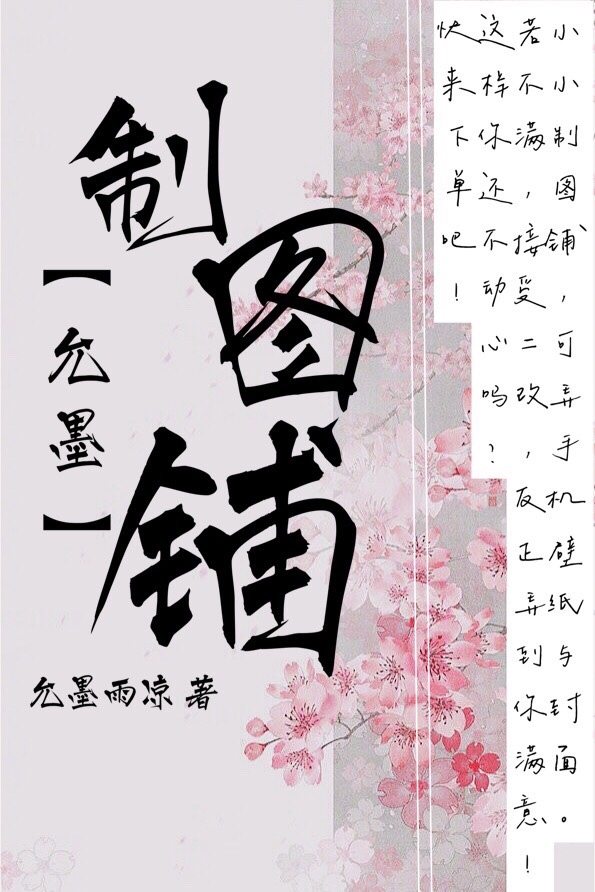 制图铺
【允墨】
允墨雨凉 著
小小制图铺，可弄手机壁纸与封面。
若不满，接受二改，反正弄到你满意！
这样你还不动心吗？
快来下单吧！